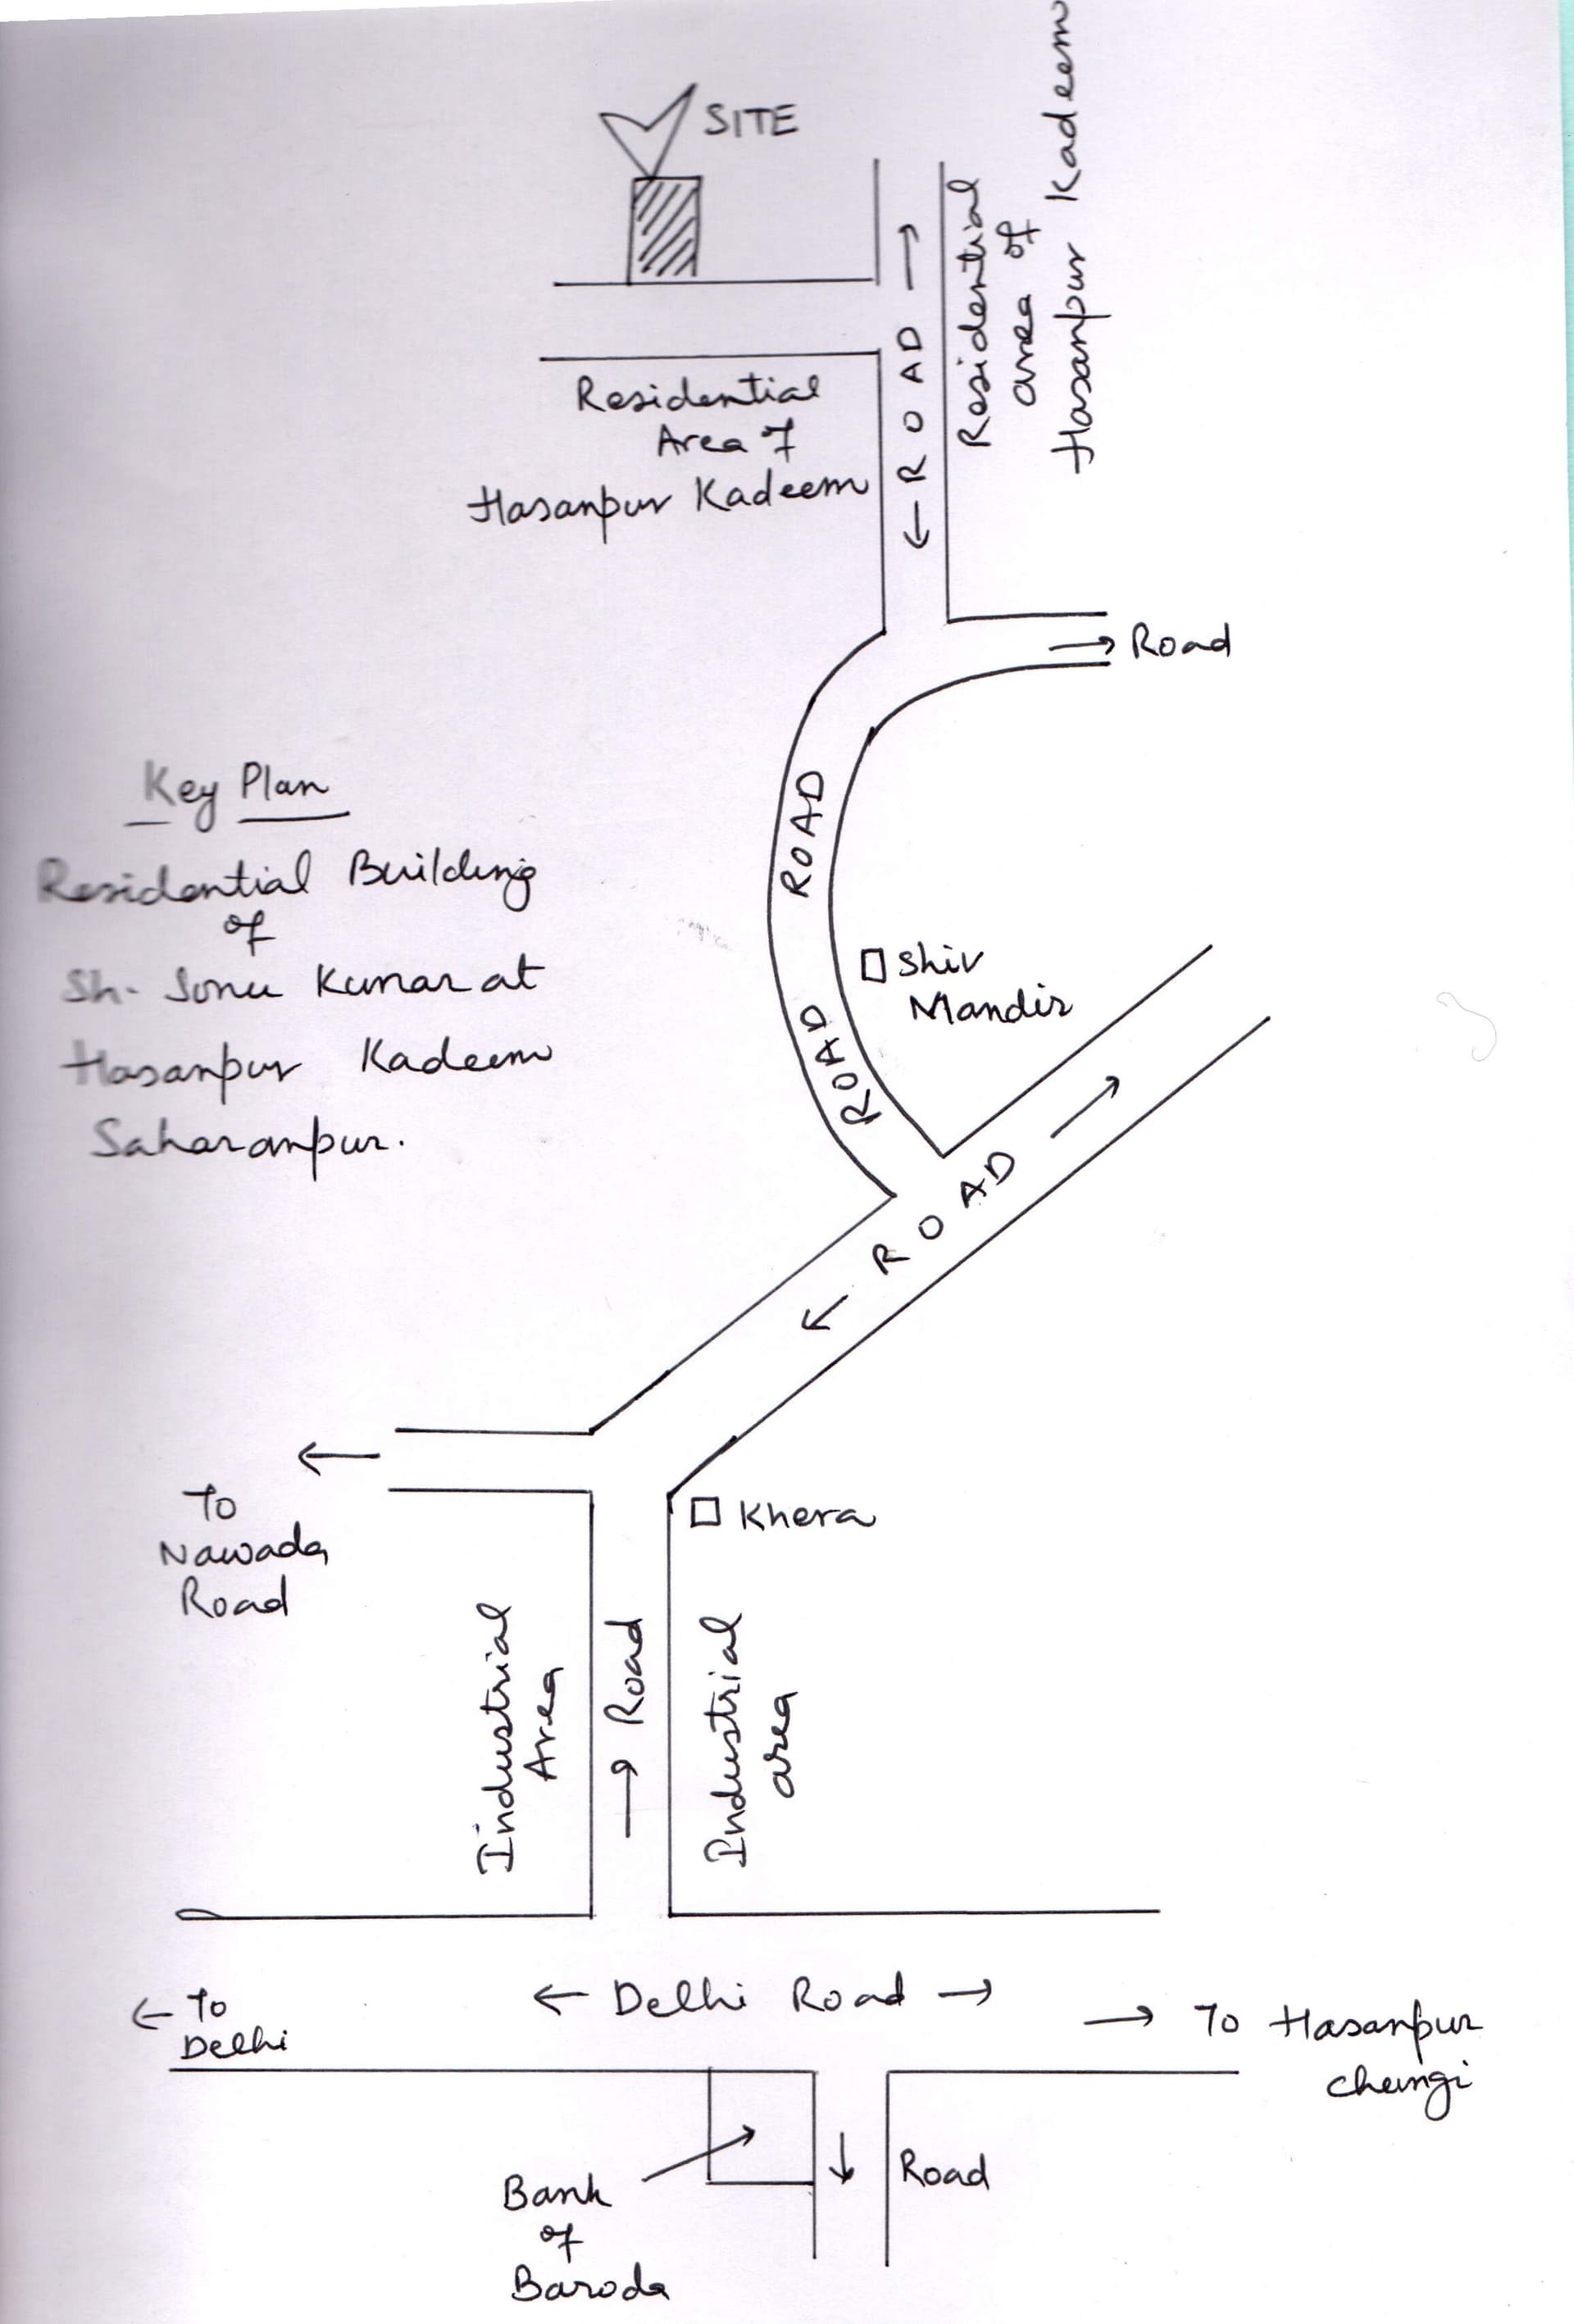 SITE
Residential
area of
Hasanpur Kadeem
ROAD
Residential
Area of
Hasanpur Kadeem
Road
Key Plan
Residential Building
of
Sh. Sonu Kumar at
Hasanpur Kadeem
Saharanpur.
ROAD
Shiv
Mandir
ROAD
ROAD
To
Nawada
Road
Khera
Industrial
Area
Road
Industrial
area
Delhi Road
To
Delhi
To Hasanpur
chungi
Road
Bank
of
Baroda